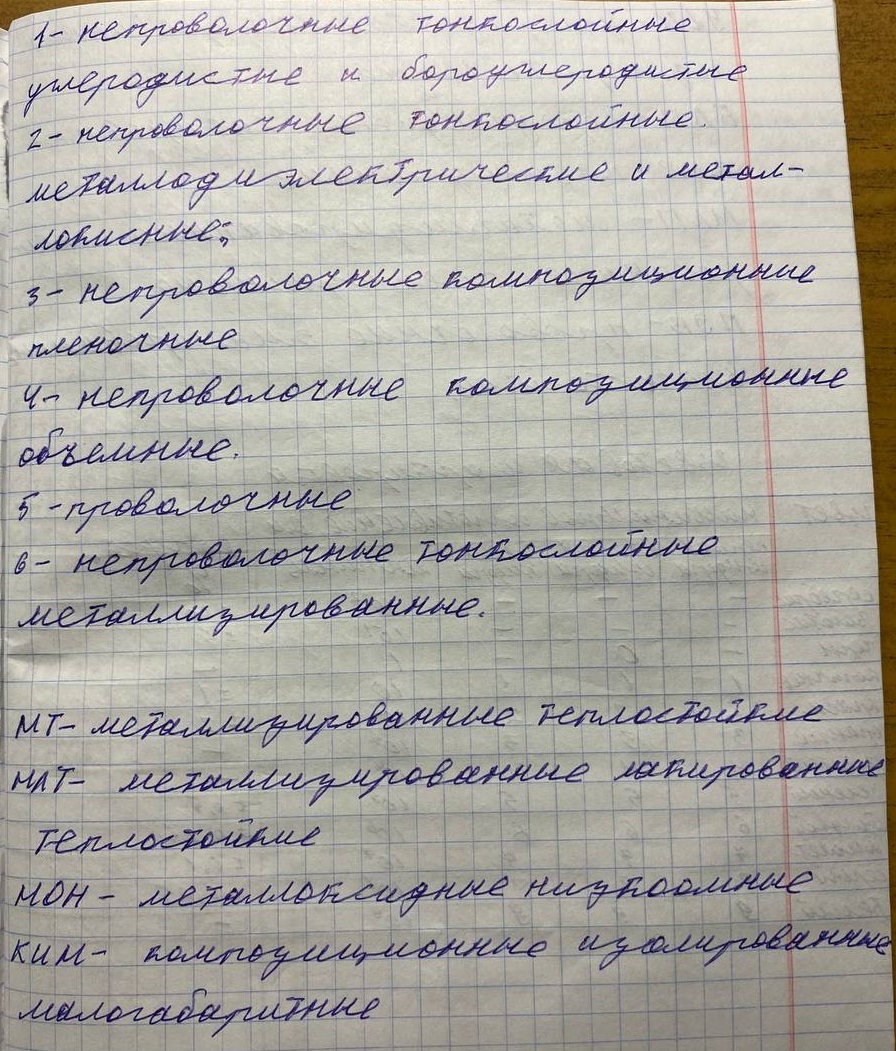 1- непроволочные тонкослойные
углеродистые и бороуглеродистые
2- непроволочные тонкослойные.
металлодиэлектрические и метал-
локисные;
3- непроволочные композиционные
пленочные
4- непроволочные композиционные
объемные.
5 -проволочные
6- непроволочные тонкослойные
металлизированные.
МТ- металлизированные теплостойкие
МЛТ- металлизированные лакированные
теплостойкие
МОН - металлоксидные низкоомные
КИМ- композиционные изолированные
малогабаритные